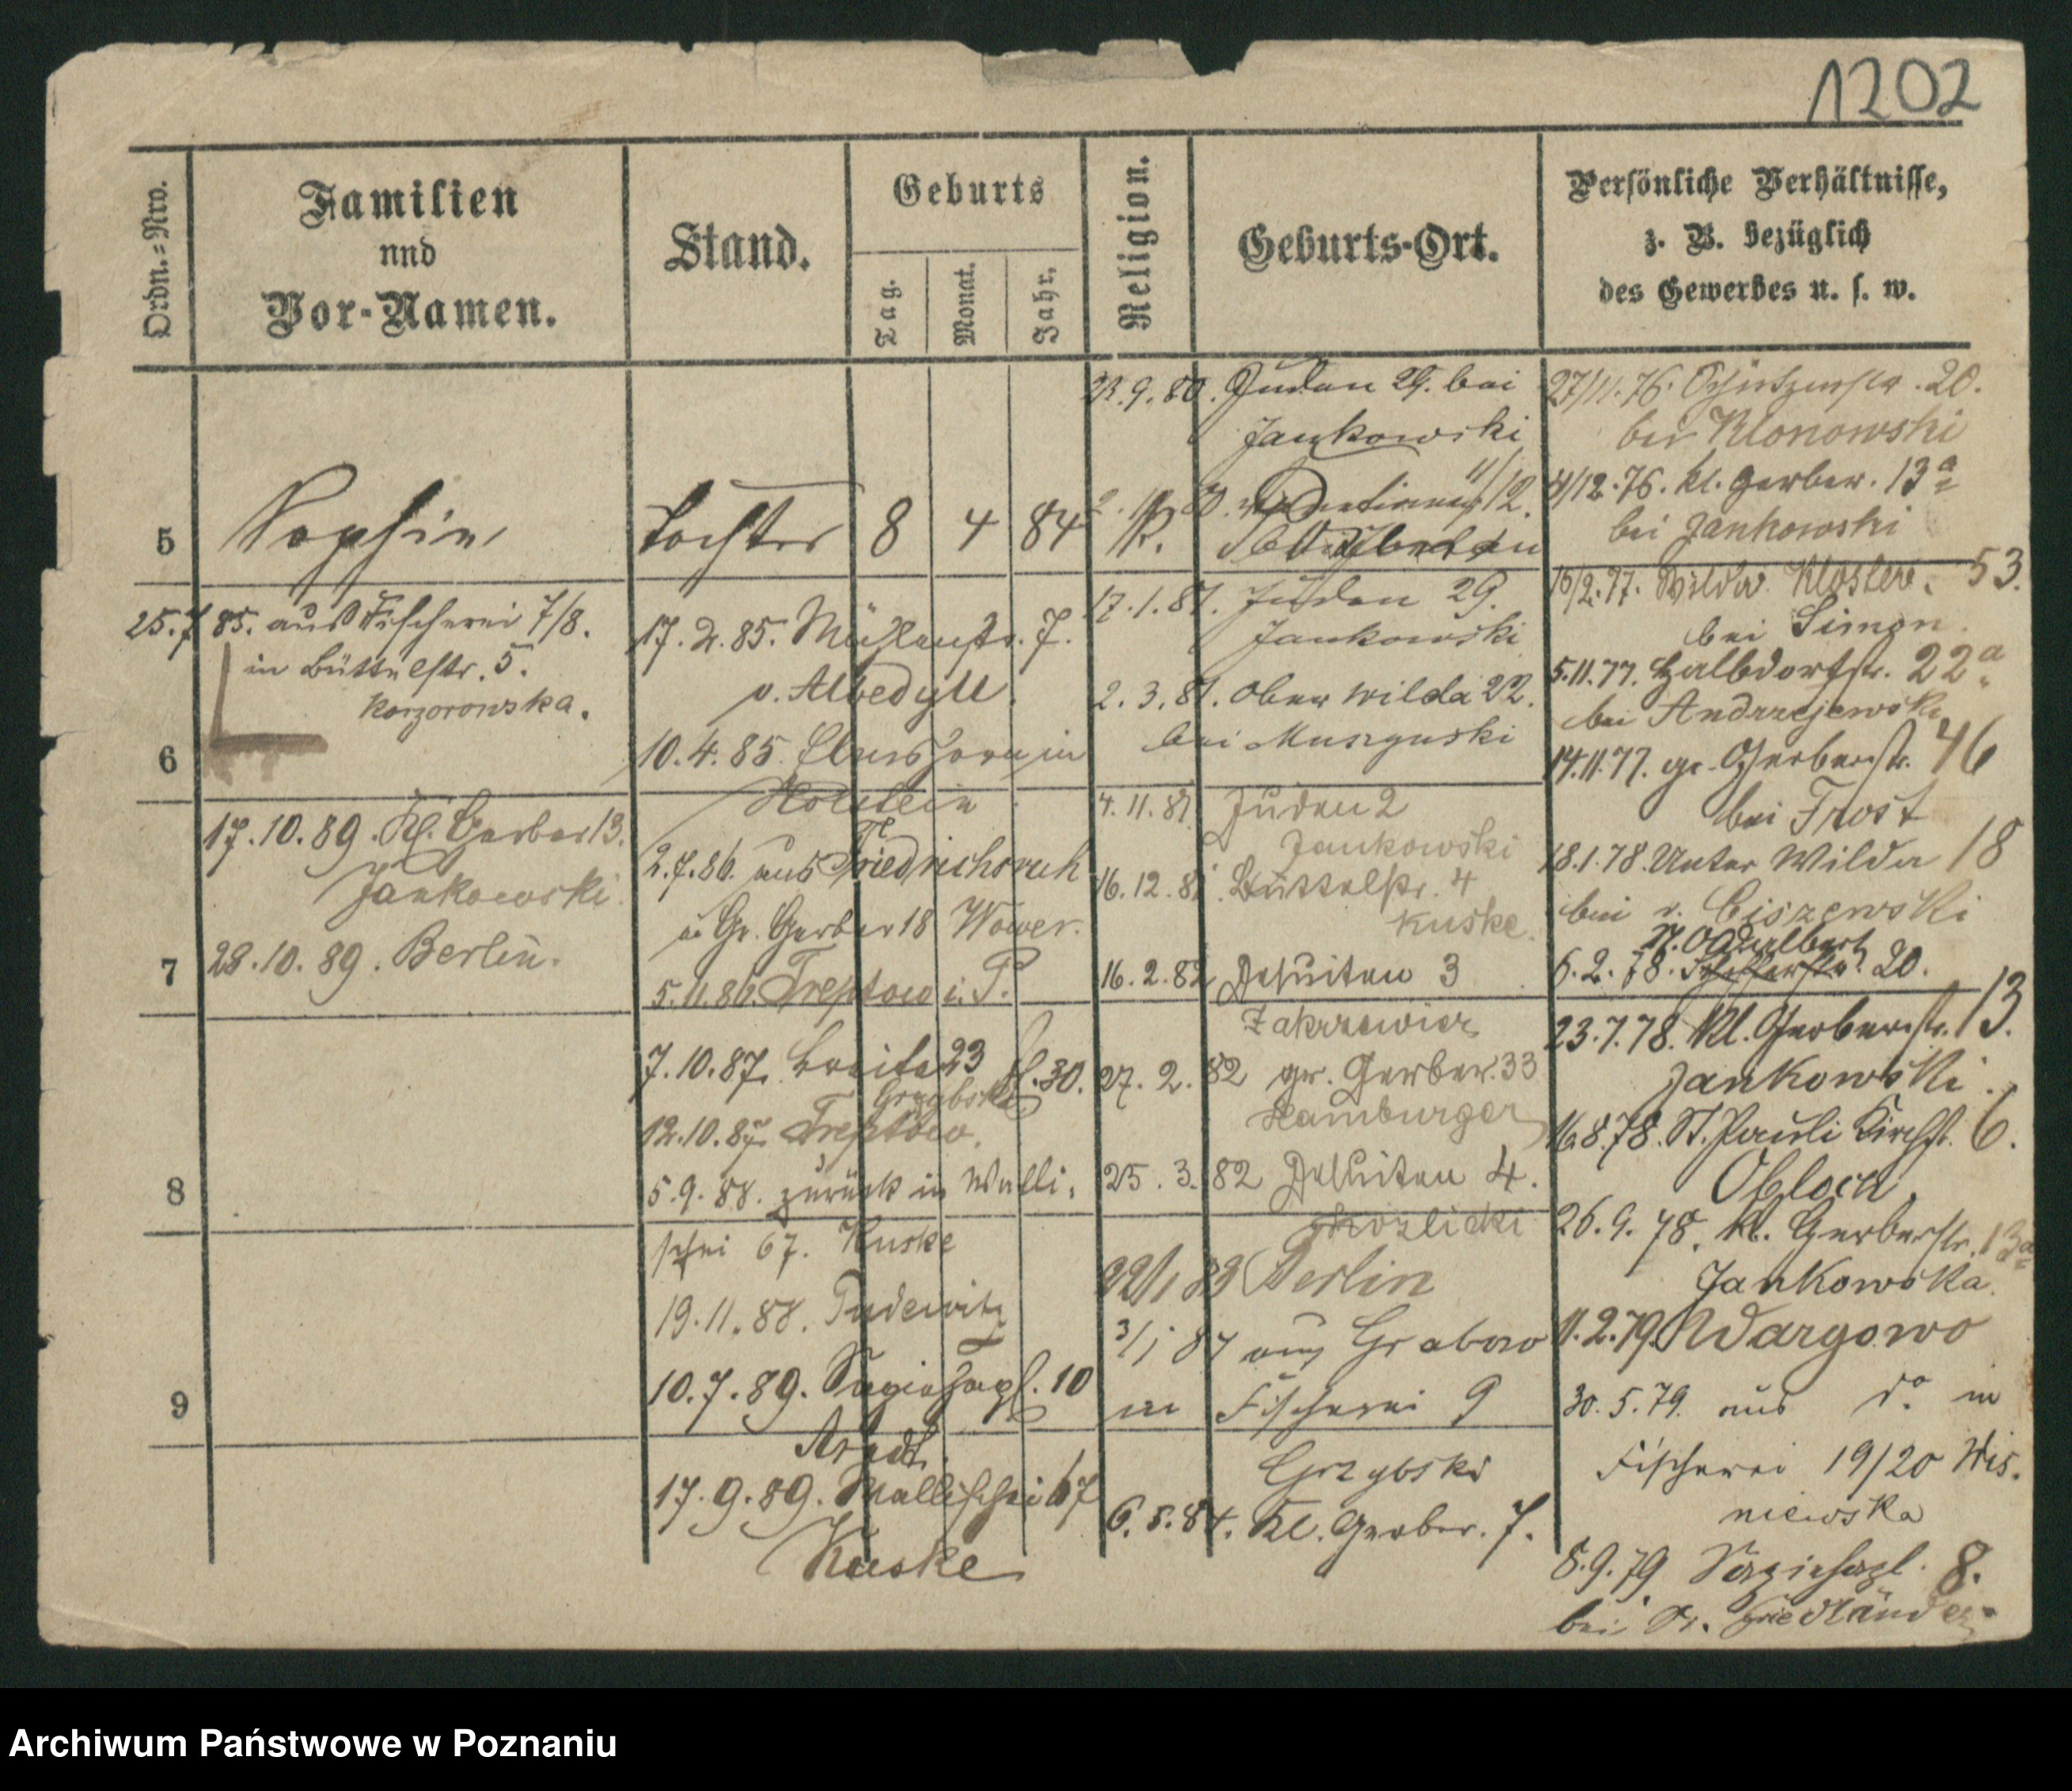 1202
Ordn.=Nro.
Familien
nnd
Vor-Namen.
Stand.
Geburts
Tag.
Monat.
Jahr.
Religion.
Geburts-Ort.
Persönliche Verhältnisse,
z. B. bezüglich
des Gewerbes u. s. w.
5
Sophie
Tochter 8 4 84
K.
6
25.7.85. aus Fischerei 7/8.
in Büttelstr. 5.
7
17.10.89. Kl. Gerber 13.
Jankowski
28.10.89. Berlin.
8
9
17.2.85. Mühlenstr. 7.
v. Albedyll.
10.4.85. in
Holstein
2.7.86. aus Friedrichsruh
in Gr. Gerber 18 Wower.
5.11.86. Treptow i. P.
7.10.87. Breite 23
Grzybski
12.10.87. Treptow.
5.9.88. zurück in Walli-
schei 67. Kuske
19.11.88. Pudewitz
10.7.89. Sapiehapl. 10
Arndt.
17.9.89. Wallischei 67
Kuske
9.80. Juden 29. bei
Jankowski
17.1.81. Juden 29.
Jankowski
2.3.81. Ober Wilda 22.
bei Muszynski
4.11.81. Juden 2
Jankowski
16.12.81. Büttelstr. 4
Kuske.
16.2.82 Jesuiten 3
Zakrzewicz
27.2.82 gr. Gerber. 33
Hamburger
25.3.82 Jesuiten 4.
22/1 83 Berlin
aus Grabow
in Fischerei 9
Grzybski
6.5.84. Kl. Gerber. 7.
27/11.76. Schützenstr. 20.
bei Klonowski
4/12.76. kl. Gerber. 13a
bei Jankowski
10/2.77. Wilda. Kloster. 53.
bei Simon.
5.11.77. Halbdorfstr. 22a
bei Andrzejewski
14.11.77. gr. Gerberstr. 46
bei Frost
18.1.78. Unter Wilda 18
bei v. Ciszewski
St. Adalbert
6.2.78. 20.
23.7.78. Kl. Gerberstr. 13.
Jankowski.
16.8.78. St. Pauli Kirchstr. 6.
Obloch.
26.9.78. Kl. Gerberstr. 13a
Jankowska.
11.2.79. Wargowo
30.5.79. aus do. in
Fischerei 19/20 Wis-
niewska
8.9.79 Sapiehapl. 8.
bei Dr. Friedländer
Archiwum Państwowe w Poznaniu